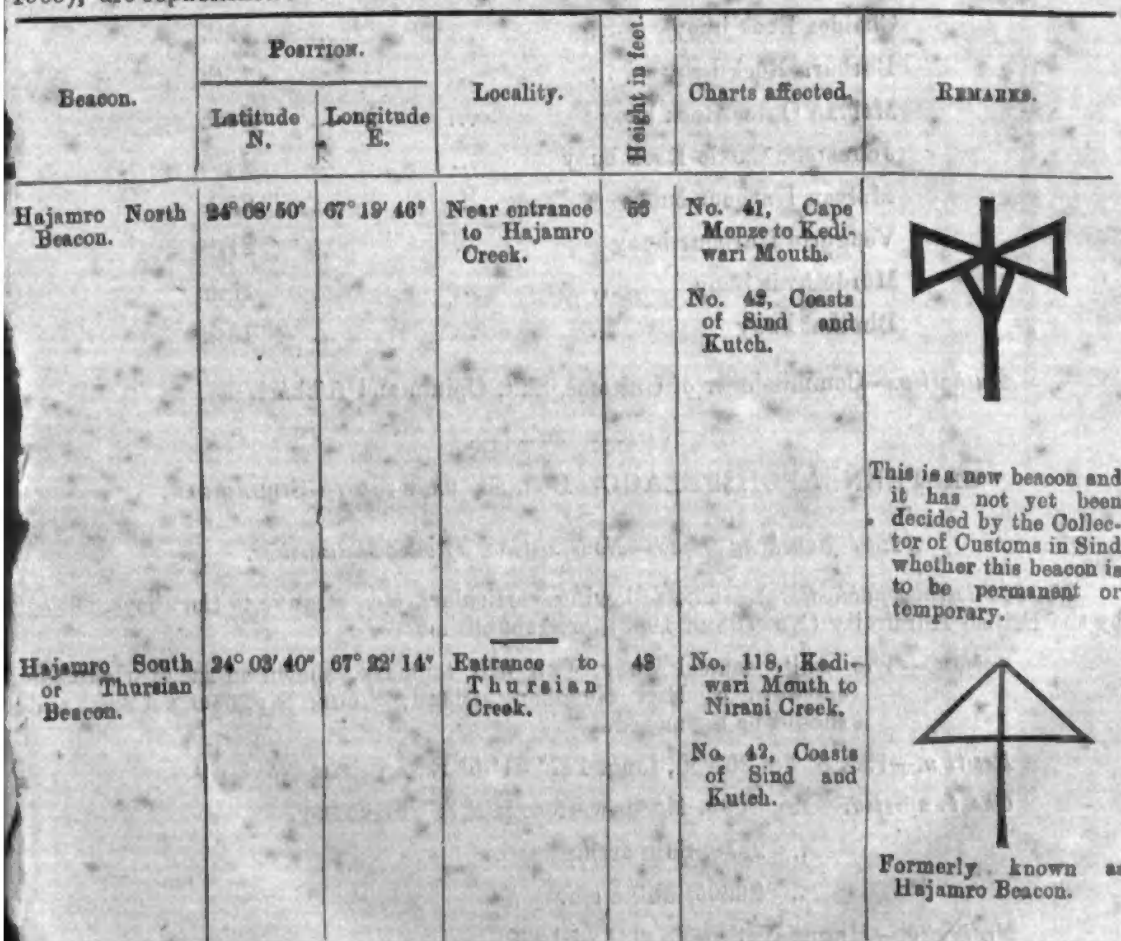 Beacon.
POSITION.
Latitude
N.
Longitude
E.
Locality.
Height in feet.
Charts affected.
REMARKS.
Hajamro North
Beacon.
24° 08' 50"
67° 19' 46"
Near entrance
to Hajamro
Creek.
No. 41, Cape
Monze to Kedi-
wari Mouth.
No. 42, Coasts
of Sind and
Kutch.
This is a new beacon and
it has not yet been
decided by the Collec-
tor of Customs in Sind
whether this beacon is
to be permanent or
temporary.
Hajamro South
or Thursian
Beacon.
24° 03' 40"
67° 22' 14"
Entrance to
Thursian
Creek.
48
No. 118, Kedi-
wari Mouth to
Nirani Creek.
No. 42, Coasts
of Sind and
Kutch.
Formerly known as
Hajamro Beacon.